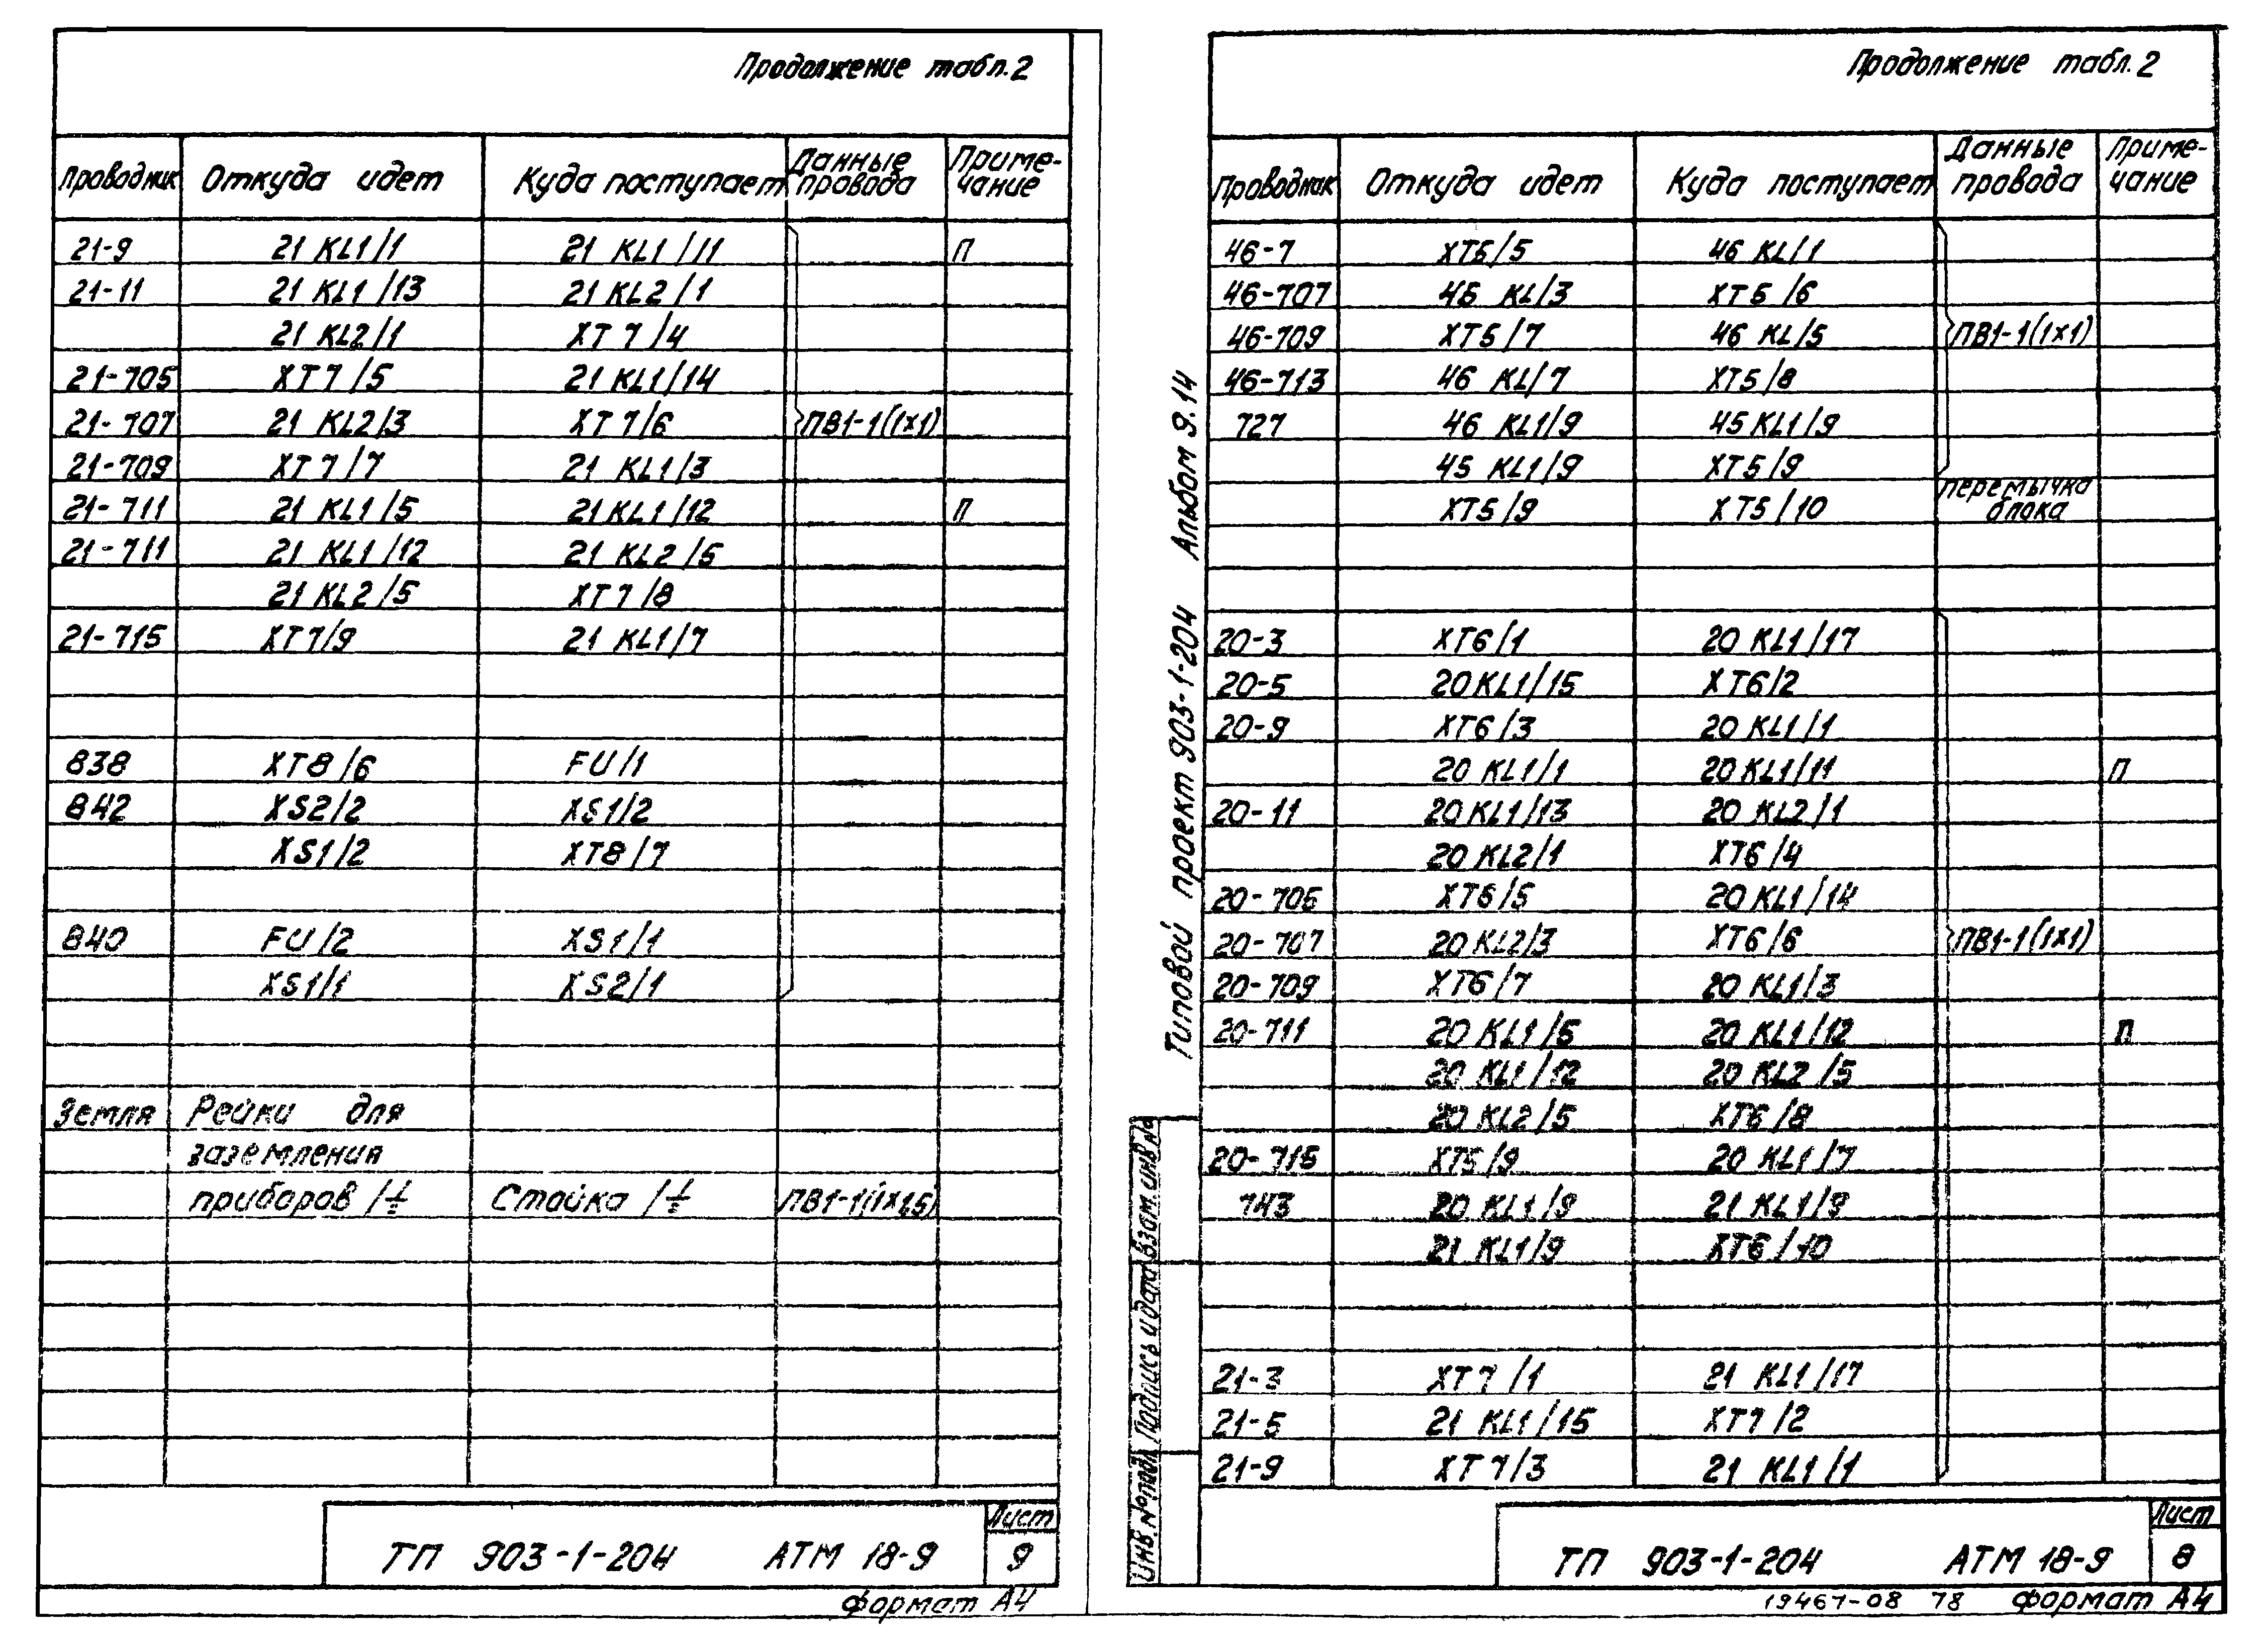 Продолжение табл.2
Проводник Откуда идет Куда поступает Данные провода Приме-чание
21-9 21 KL1/1 21 KL1/11 П
21-11 21 KL1/13 21 KL2/1
21 KL2/1 XT7/4
21-705 XT7/5 21 KL1/14
21-707 21 KL2/3 XT7/6 ПВ1-1(1х1)
21-709 XT7/7 21 KL1/3
21-711 21 KL1/5 21 KL1/12 П
21-711 21 KL1/12 21 KL2/5
21 KL2/5 XT7/8
21-715 XT7/9 21 KL1/7
838 XT8/6 FU/1
842 XS2/2 XS1/2
XS1/2 XT8/7
840 FU/2 XS1/1
XS1/1 XS2/1
Земля Рейки для
заземления
приборов /⏚ Стойка /⏚ ПВ1-1(1х1,5)
Лист
ТП 903-1-204 АТМ 18-9 9
формат А4
Продолжение табл.2
Проводник Откуда идет Куда поступает Данные провода Приме-чание
46-7 XT5/5 46 KL/1
46-707 46 KL/3 XT5/6
46-709 XT5/7 46 KL/5 ПВ1-1(1х1)
46-713 46 KL/7 XT5/8
727 46 KL1/9 45 KL1/9
45 KL1/9 XT5/9
XT5/9 XT5/10 перемычка блока
20-3 XT6/1 20 KL1/17
20-5 20 KL1/15 XT6/2
20-9 XT6/3 20 KL1/1
20 KL1/1 20 KL1/11 П
20-11 20 KL1/13 20 KL2/1
20 KL2/1 XT6/4
20-705 XT6/5 20 KL1/14
20-707 20 KL2/3 XT6/6 ПВ1-1(1х1)
20-709 XT6/7 20 KL1/3
20-711 20 KL1/5 20 KL1/12 П
20 KL1/12 20 KL2/5
20 KL2/5 XT6/8
20-715 XT5/9 20 KL1/7
743 20 KL1/9 21 KL1/9
21 KL1/9 XT6/10
21-3 XT7/1 21 KL1/17
21-5 21 KL1/15 XT7/2
21-9 XT7/3 21 KL1/1
Лист
ТП 903-1-204 АТМ 18-9 8
19467-08 78 формат А4
Типовой проект 903-1-204 Альбом 9.14
Инв.№подл. Подпись и дата Взам.инв.№